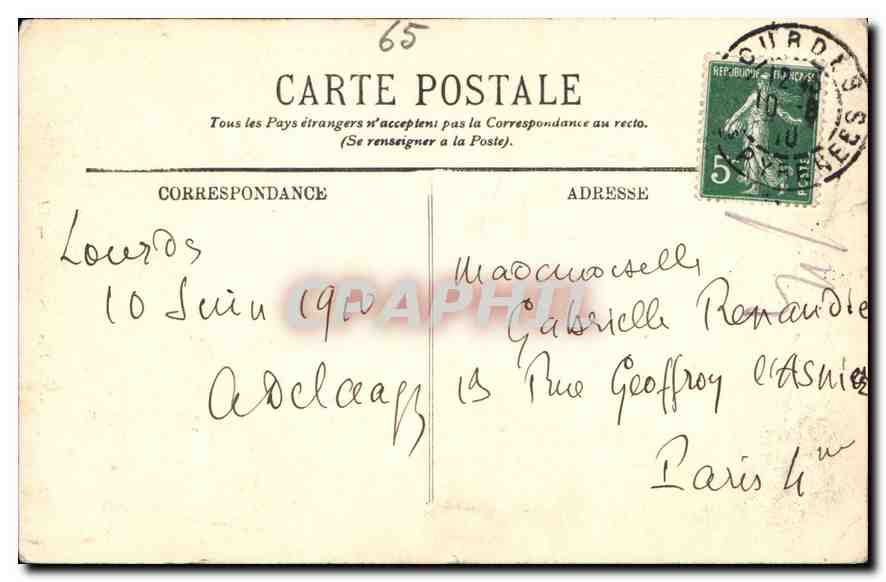 65
CARTE POSTALE
Tous les Pays étrangers n'acceptent pas la Correspondance au recto.
(Se renseigner a la Poste).
CORRESPONDANCE
ADRESSE
REPUBLIQUE FRANÇAISE
5
POSTES
Lourdes
10 Juin 1910
Mademoiselle
Gabrielle Renaudie
Rue Geoffroy l'Asnier
Paris 4me
CPAPHIL